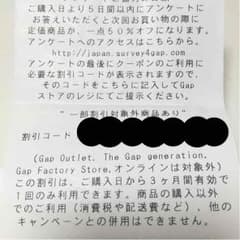 ご購入日より5日間以内にアンケートに
お答えいただくと次回お買い物の際に
定価商品が、一点50%オフになります。
アンケートへのアクセスはこちらから。
http://japan.survey4gap.com
アンケートの最後にクーポンのご利用に
必要な割引コードが表示されますので、
そのコードをこちらに記入してGap
ストアのレジにてご提示ください。
"一部割引対象外商品あり"
割引コード
(Gap Outlet, The Gap generation,
Gap Factory Store,オンラインは対象外)
この割引は、ご購入日から3ヶ月間有効で
1回のみ利用できます。商品の購入以外
でのご利用(消費税や配送費など)、他の
キャンペーンとの併用はできません。